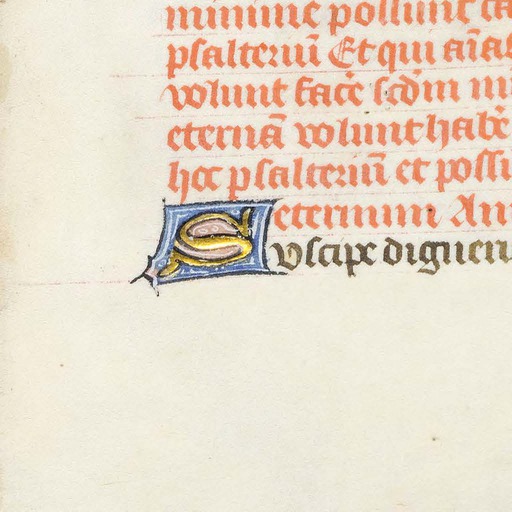 minime possunt
psalteriū Et qui aīas
volunt facē scd̄m
eternā volunt habē
hoc psalteriū et possi
eternum Am
Suscipe dignen